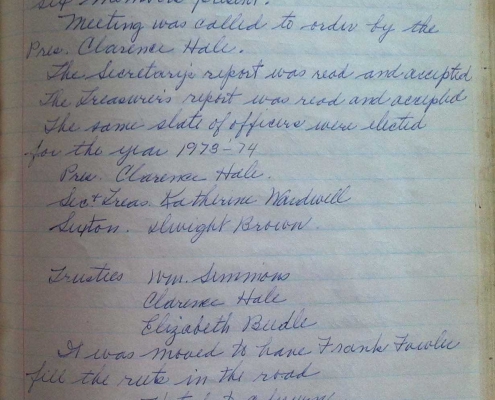 six members present.
Meeting was called to order by the
Pres. Clarence Hale.
The Secretary's report was read and accepted
The Treasurer's report was read and accepted
The same slate of officers were elected
for the year 1973-74
Pres. Clarence Hale.
Sec + Treas. Katherine Wardwell
Sexton. Dwight Brown.
Trusties Wm. Simmons
Clarence Hale
Elizabeth Budle
It was moved to have Frank Fowler
fill the ruts in the road